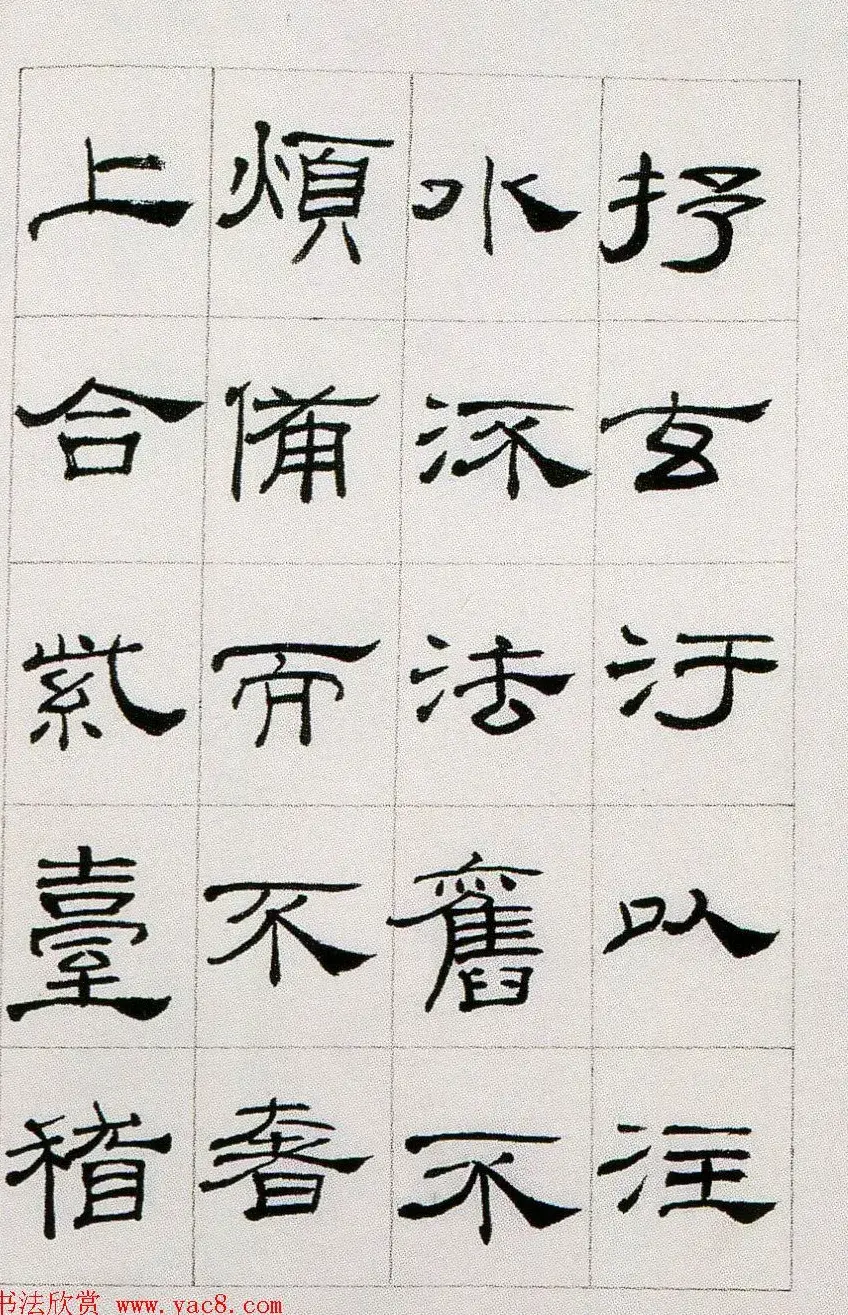 抒玄汙以注
水流法舊不
煩備而不奢
上合紫臺稽
书法欣赏 www.yac8.com